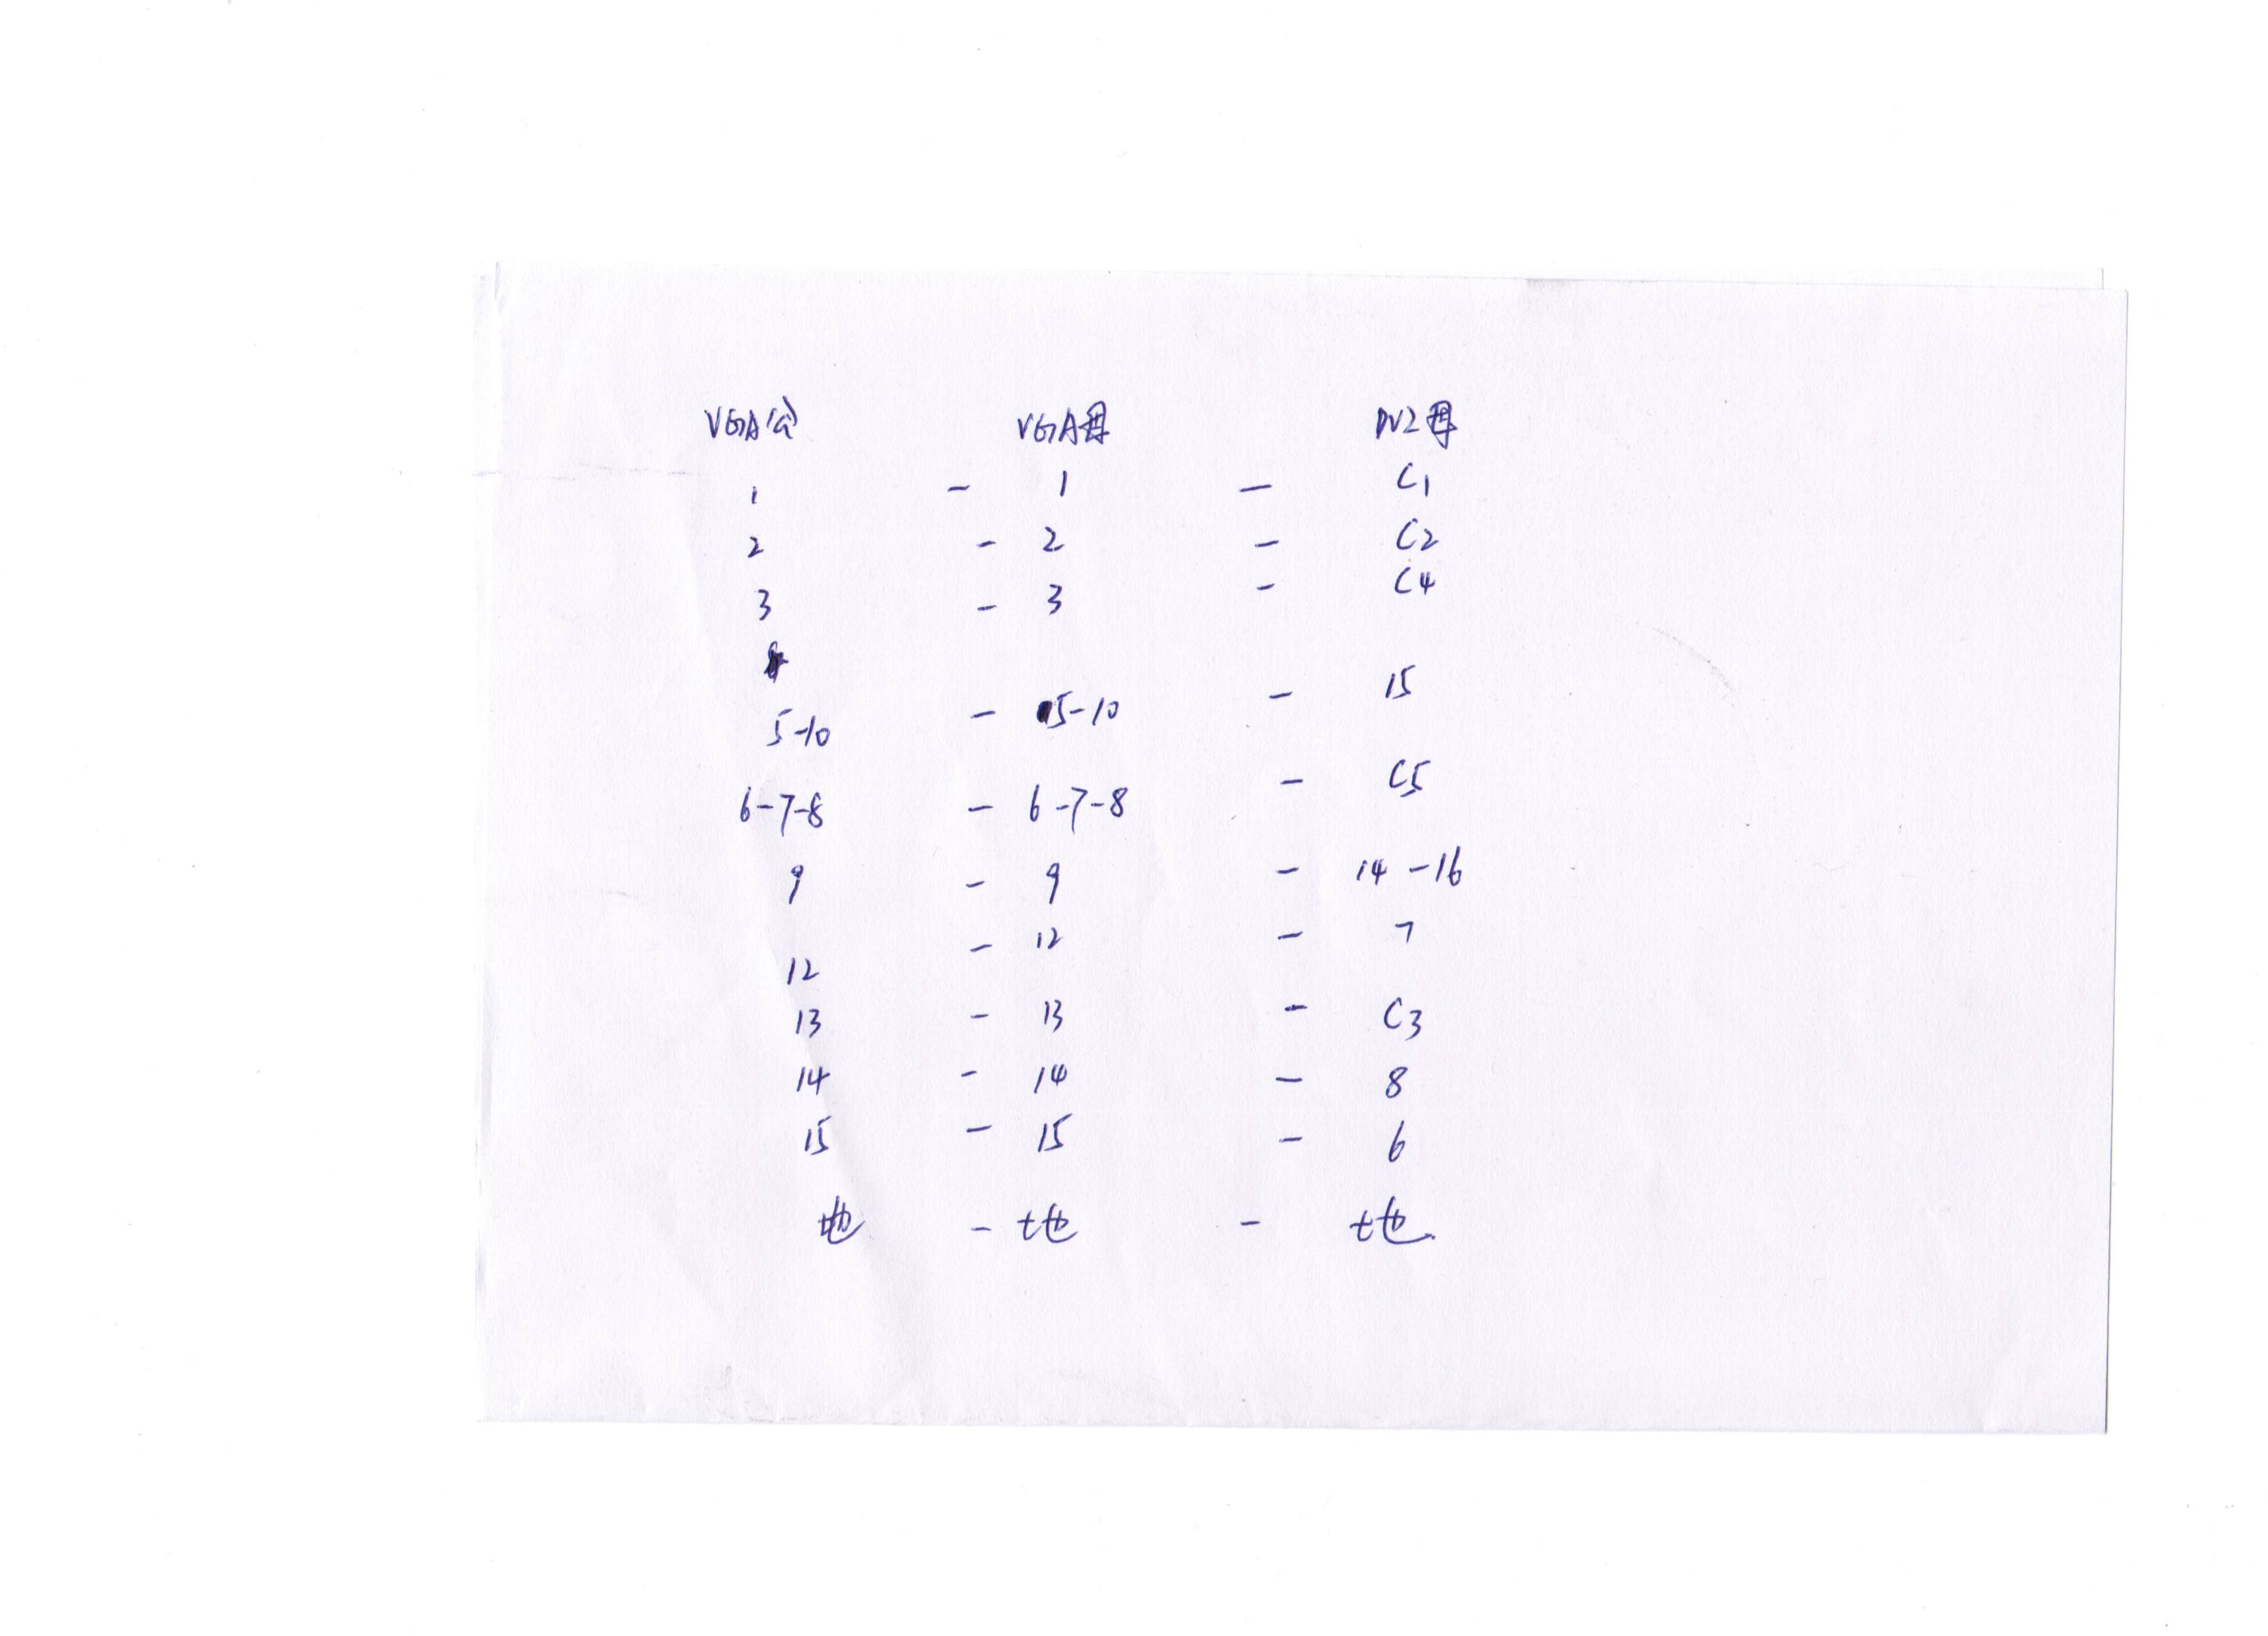 VGA公 VGA母 DVI母
1 - 1 - C1
2 - 2 - C2
3 - 3 - C4
5-10 - 5-10 - 15
6-7-8 - 6-7-8 - C5
9 - 9 - 14-16
12 - 12 - 7
13 - 13 - C3
14 - 14 - 8
15 - 15 - 6
地 - 地 - 地.